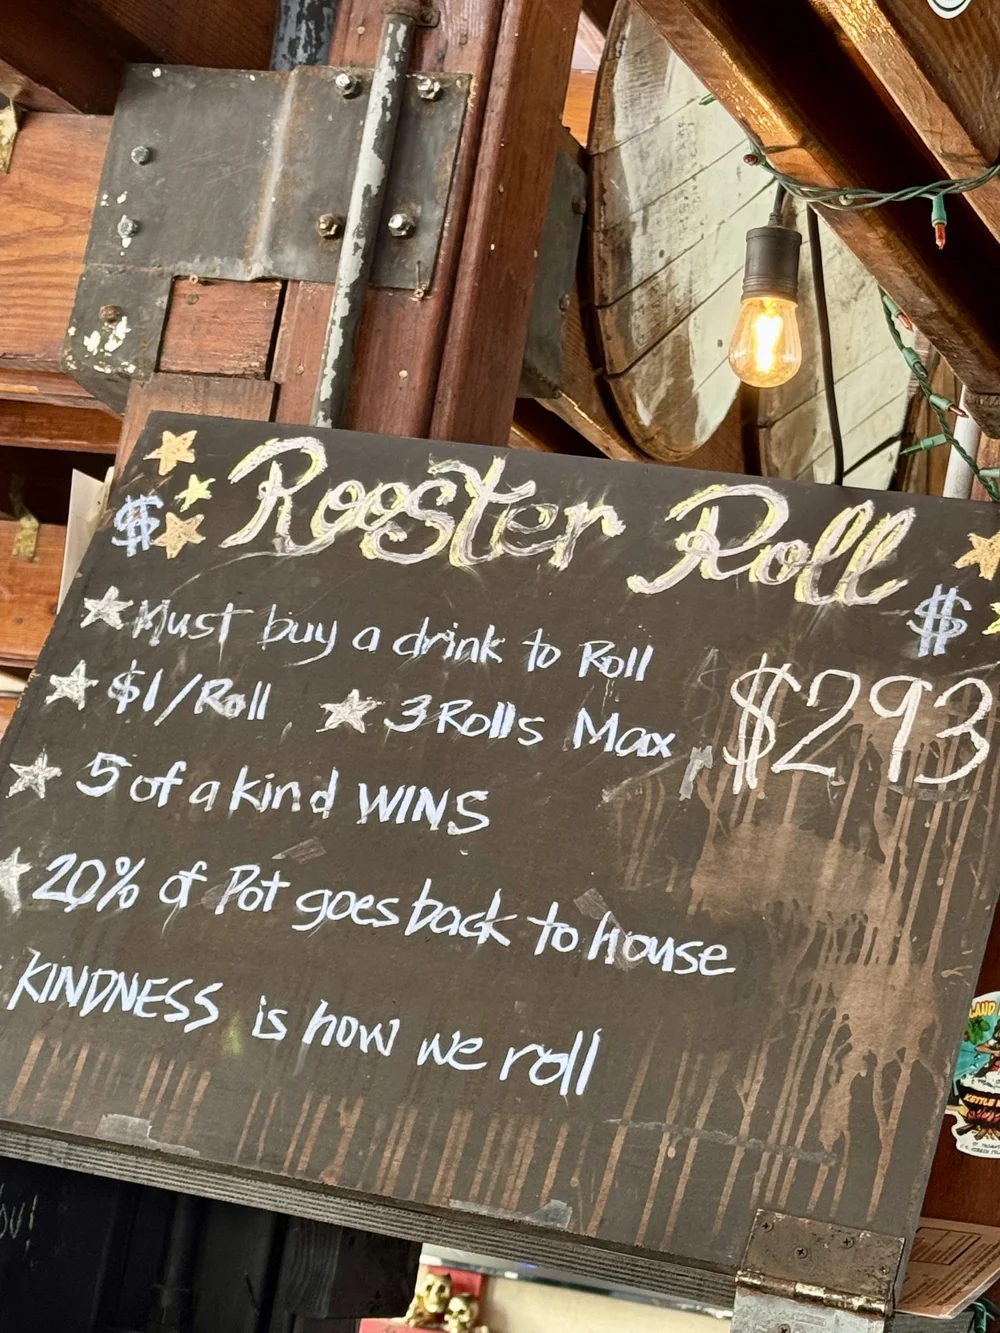 Rooster Roll
$
$
Must buy a drink to Roll
$1/Roll 3 Rolls Max
$293
5 of a kind WINS
20% of Pot goes back to house
KINDNESS is how we roll